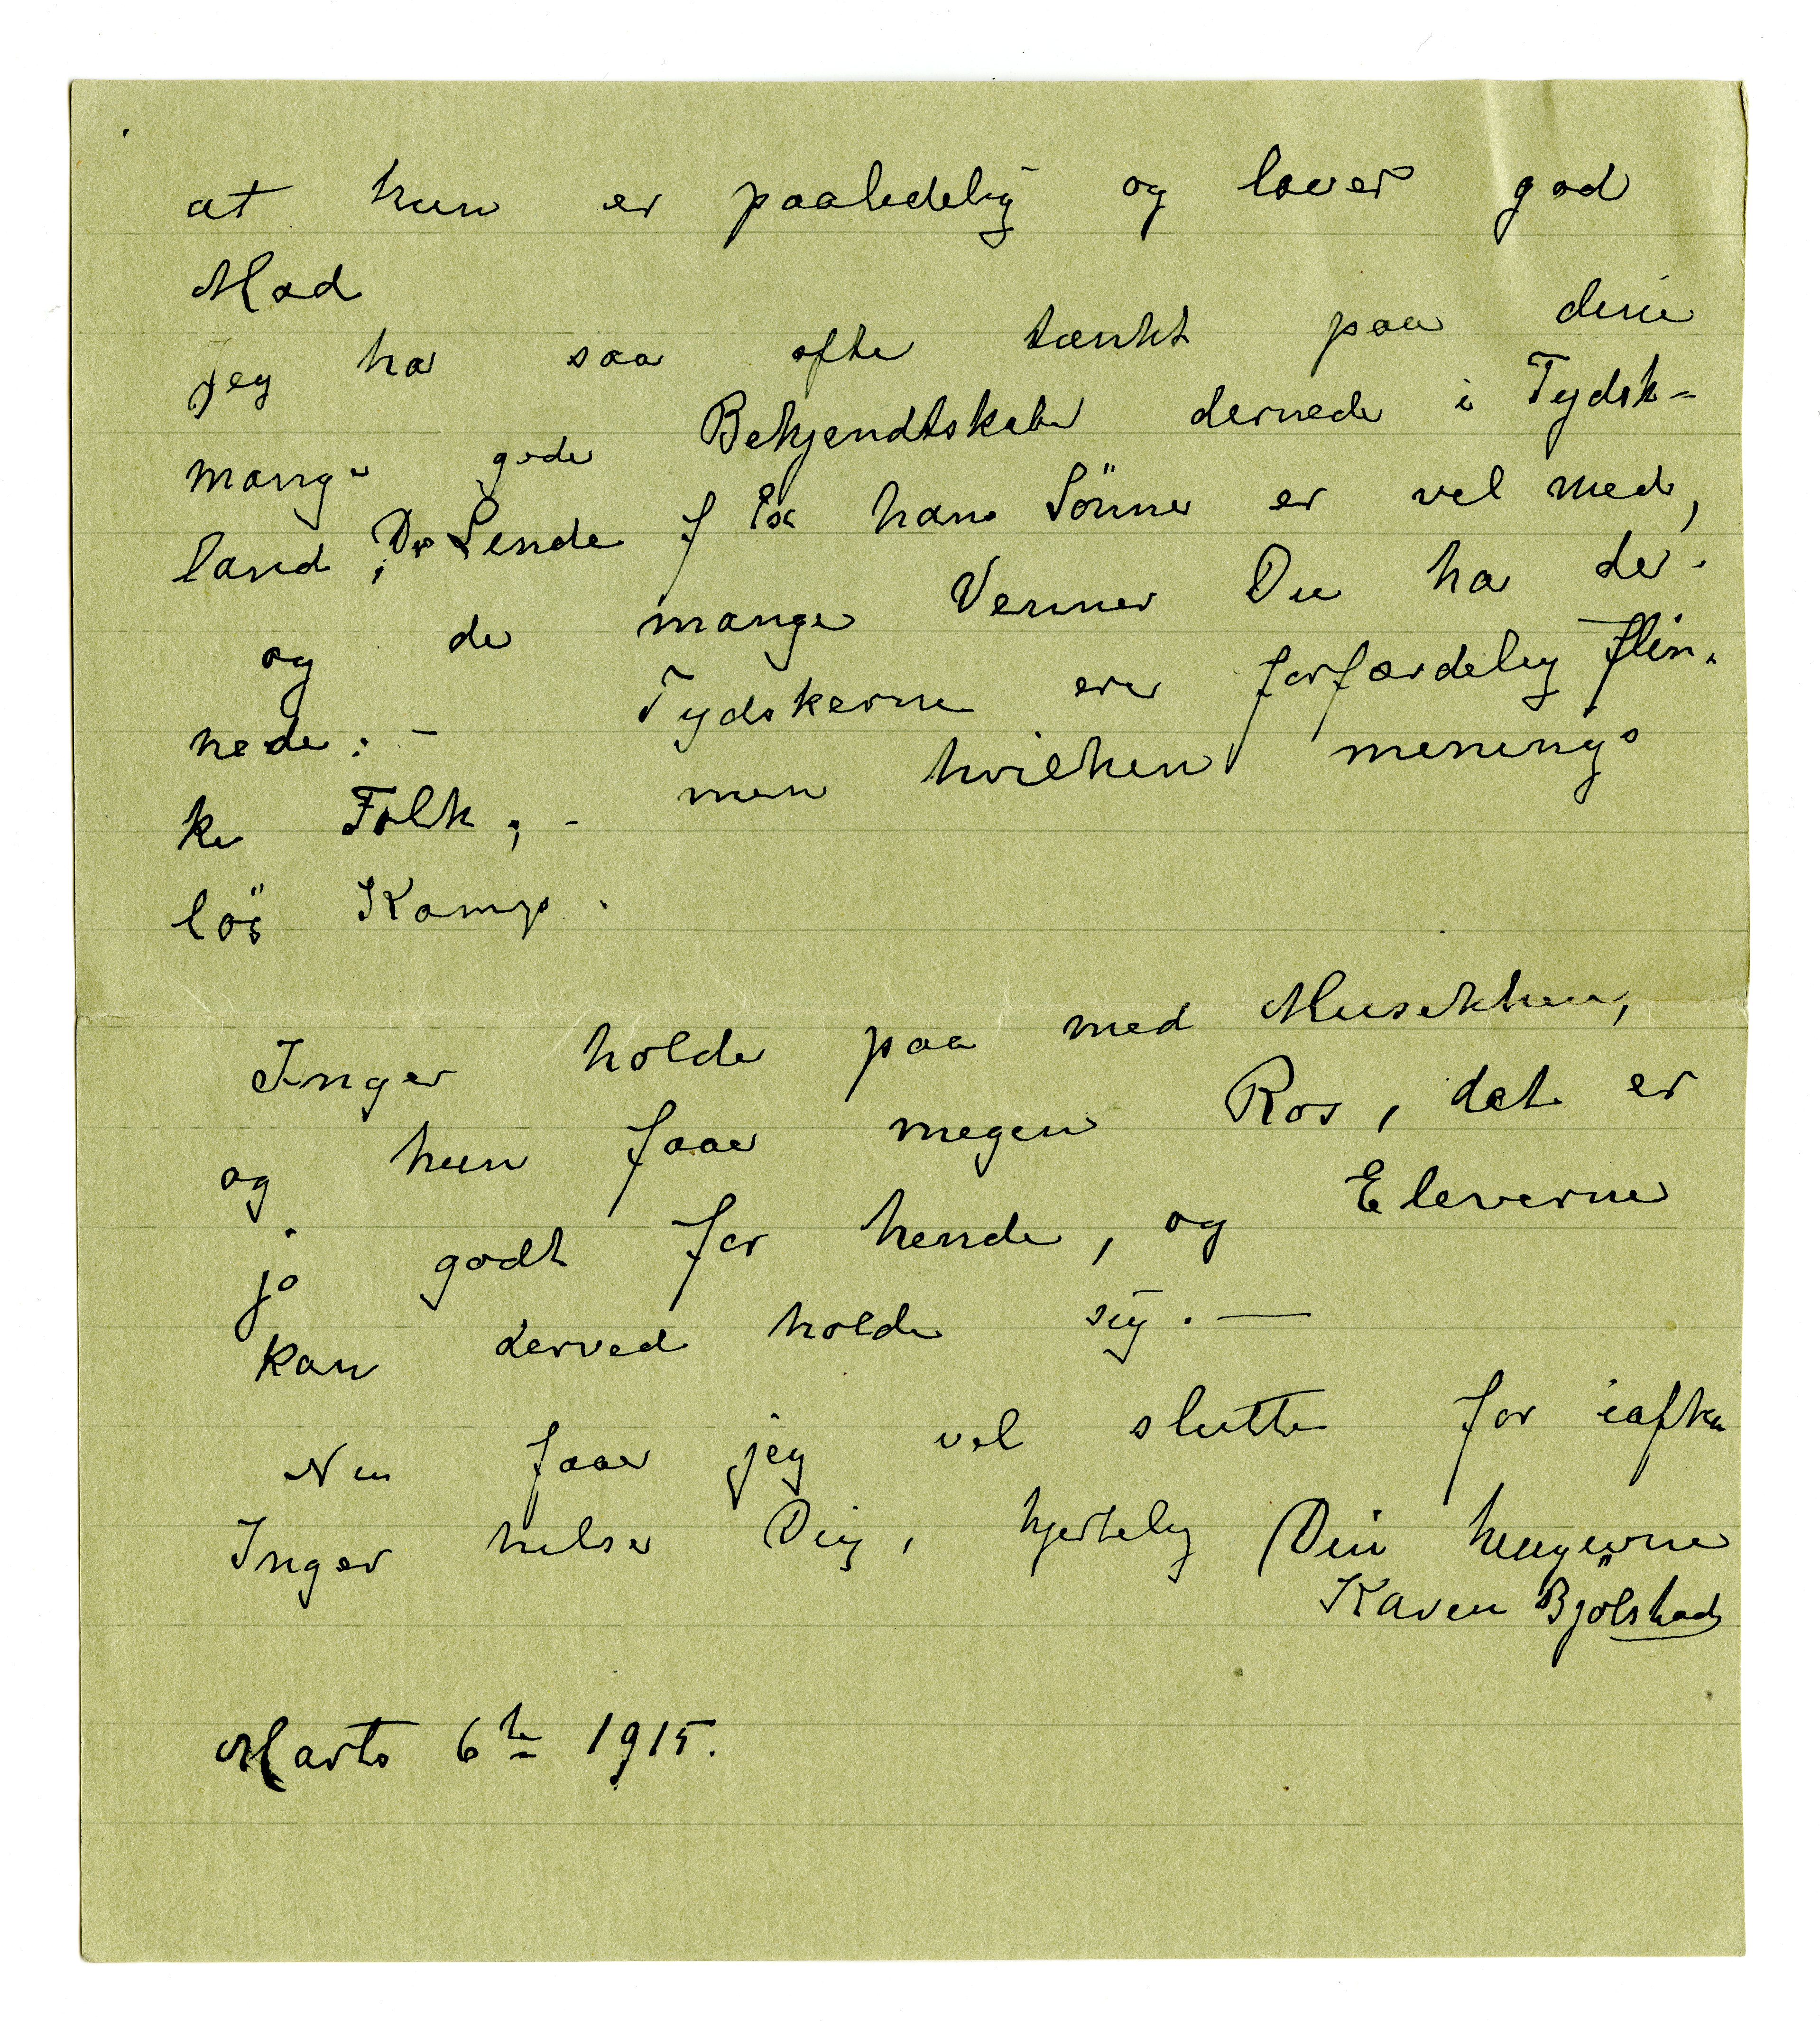 at hun er paalidelig og laver god
Mad
jeg ha saa ofte tænkt paa dine
mange gode Bekjendtskaber dernede i Tydsk-
land; Dr Linde f Ex hans Sönner er vel med,
og de mange Venner Du ha der-
nede: - Tydskerne ere forfærdelig flin-
ke Folk; - men hvilken menings
lös Kamp.
Inger holder paa med Musikken,
og hun faar megen Ros, det er
jo godt for hende, og Eleverne
kan derved holde sig. -
Nu faar jeg vel slutte for iaften
Inger hilser Dig, hjertelig Din hengivne
Karen Bjölstad
Marts 6te 1915.